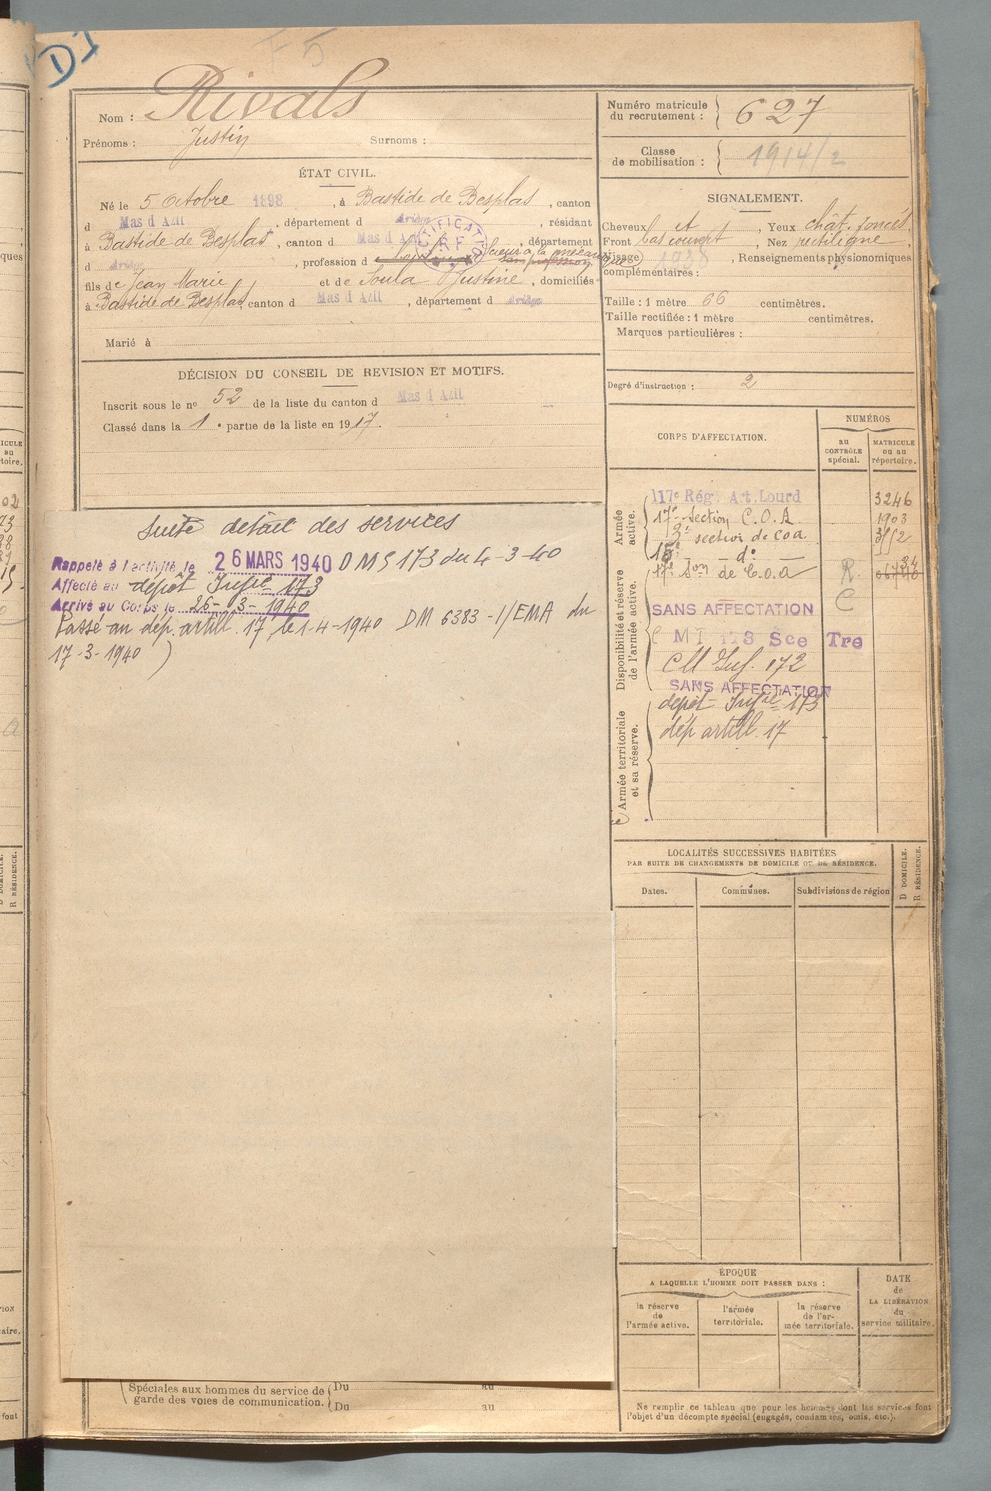 D I
F 5
Nom : Rivals
Prénoms : Justin Surnoms :
ÉTAT CIVIL.
Né le 5 Octobre 1898, à Bastide de Besplas, canton
d Mas d Azil, département d Ariège, résidant
à Bastide de Besplas, canton d Mas d Azil, département
d Ariège, profession d scieur à la mécanique sans profession
fils de Jean Marie et de Soula Justine, domiciliés
à Bastide de Besplas, canton d Mas d Azil, département d Ariège
Marié à
DÉCISION DU CONSEIL DE REVISION ET MOTIFS.
Inscrit sous le nº 52 de la liste du canton d Mas d Azil
Classé dans la 1e partie de la liste en 1917.
Suite détail des services
Rappelé à l'activité le 26 MARS 1940 DMS 173 du 4-3-40
Affecté au dépôt Infie 173
Arrivé au Corps le 26-3-1940
Passé au dép. artill. 17 le 1-4-1940 DM 6383-1/EMA du
17-3-1940)
Spéciales aux hommes du service de garde des voies de communication. Du au
Du au
Numéro matricule du recrutement : 627
Classe de mobilisation : 1914/2
SIGNALEMENT.
Cheveux et, Yeux chât. foncés
Front bas couvert, Nez rectiligne,
Visage 1938, Renseignements physionomiques
complémentaires :
Taille : 1 mètre 66 centimètres.
Taille rectifiée : 1 mètre centimètres.
Marques particulières :
Degré d'instruction : 2
CORPS D'AFFECTATION.
NUMÉROS
au CONTRÔLE spécial.
MATRICULE ou au répertoire.
Armée active.
117e Rég. Art. Lourd 3246
17e Section C.O.A. 1903
2e section de coa 3552
15e do
Disponibilité et réserve de l'armée active.
17e Son de C.o.a R.
SANS AFFECTATION C
Sce Tre
CM Inf. 172
SANS AFFECTATION
Armée territoriale et sa réserve.
dépôt Infie 173
dép artill. 17
LOCALITÉS SUCCESSIVES HABITÉES
PAR SUITE DE CHANGEMENTS DE DOMICILE OU DE RÉSIDENCE.
Dates. Communes. Subdivisions de région
D DOMICILE.
R RÉSIDENCE.
ÉPOQUE
A LAQUELLE L'HOMME DOIT PASSER DANS :
la réserve de l'armée active.
l'armée territoriale.
la réserve de l'armée territoriale.
DATE de LA LIBÉRATION du service militaire.
Ne remplir ce tableau que pour les hommes dont les services font
l'objet d'un décompte spécial (engagés, condamnés, omis, etc.).